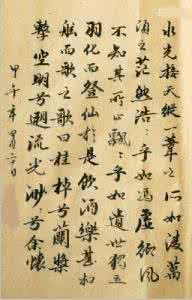 水光接天縱一葦之所如凌萬
頃之茫然浩〻乎如馮虛御風
不知其所止飄〻乎如遺世獨立
羽化而登仙於是飲酒樂甚扣
舷而歌之歌曰桂棹兮蘭槳
擊空明兮遡流光渺兮余懷
甲午年